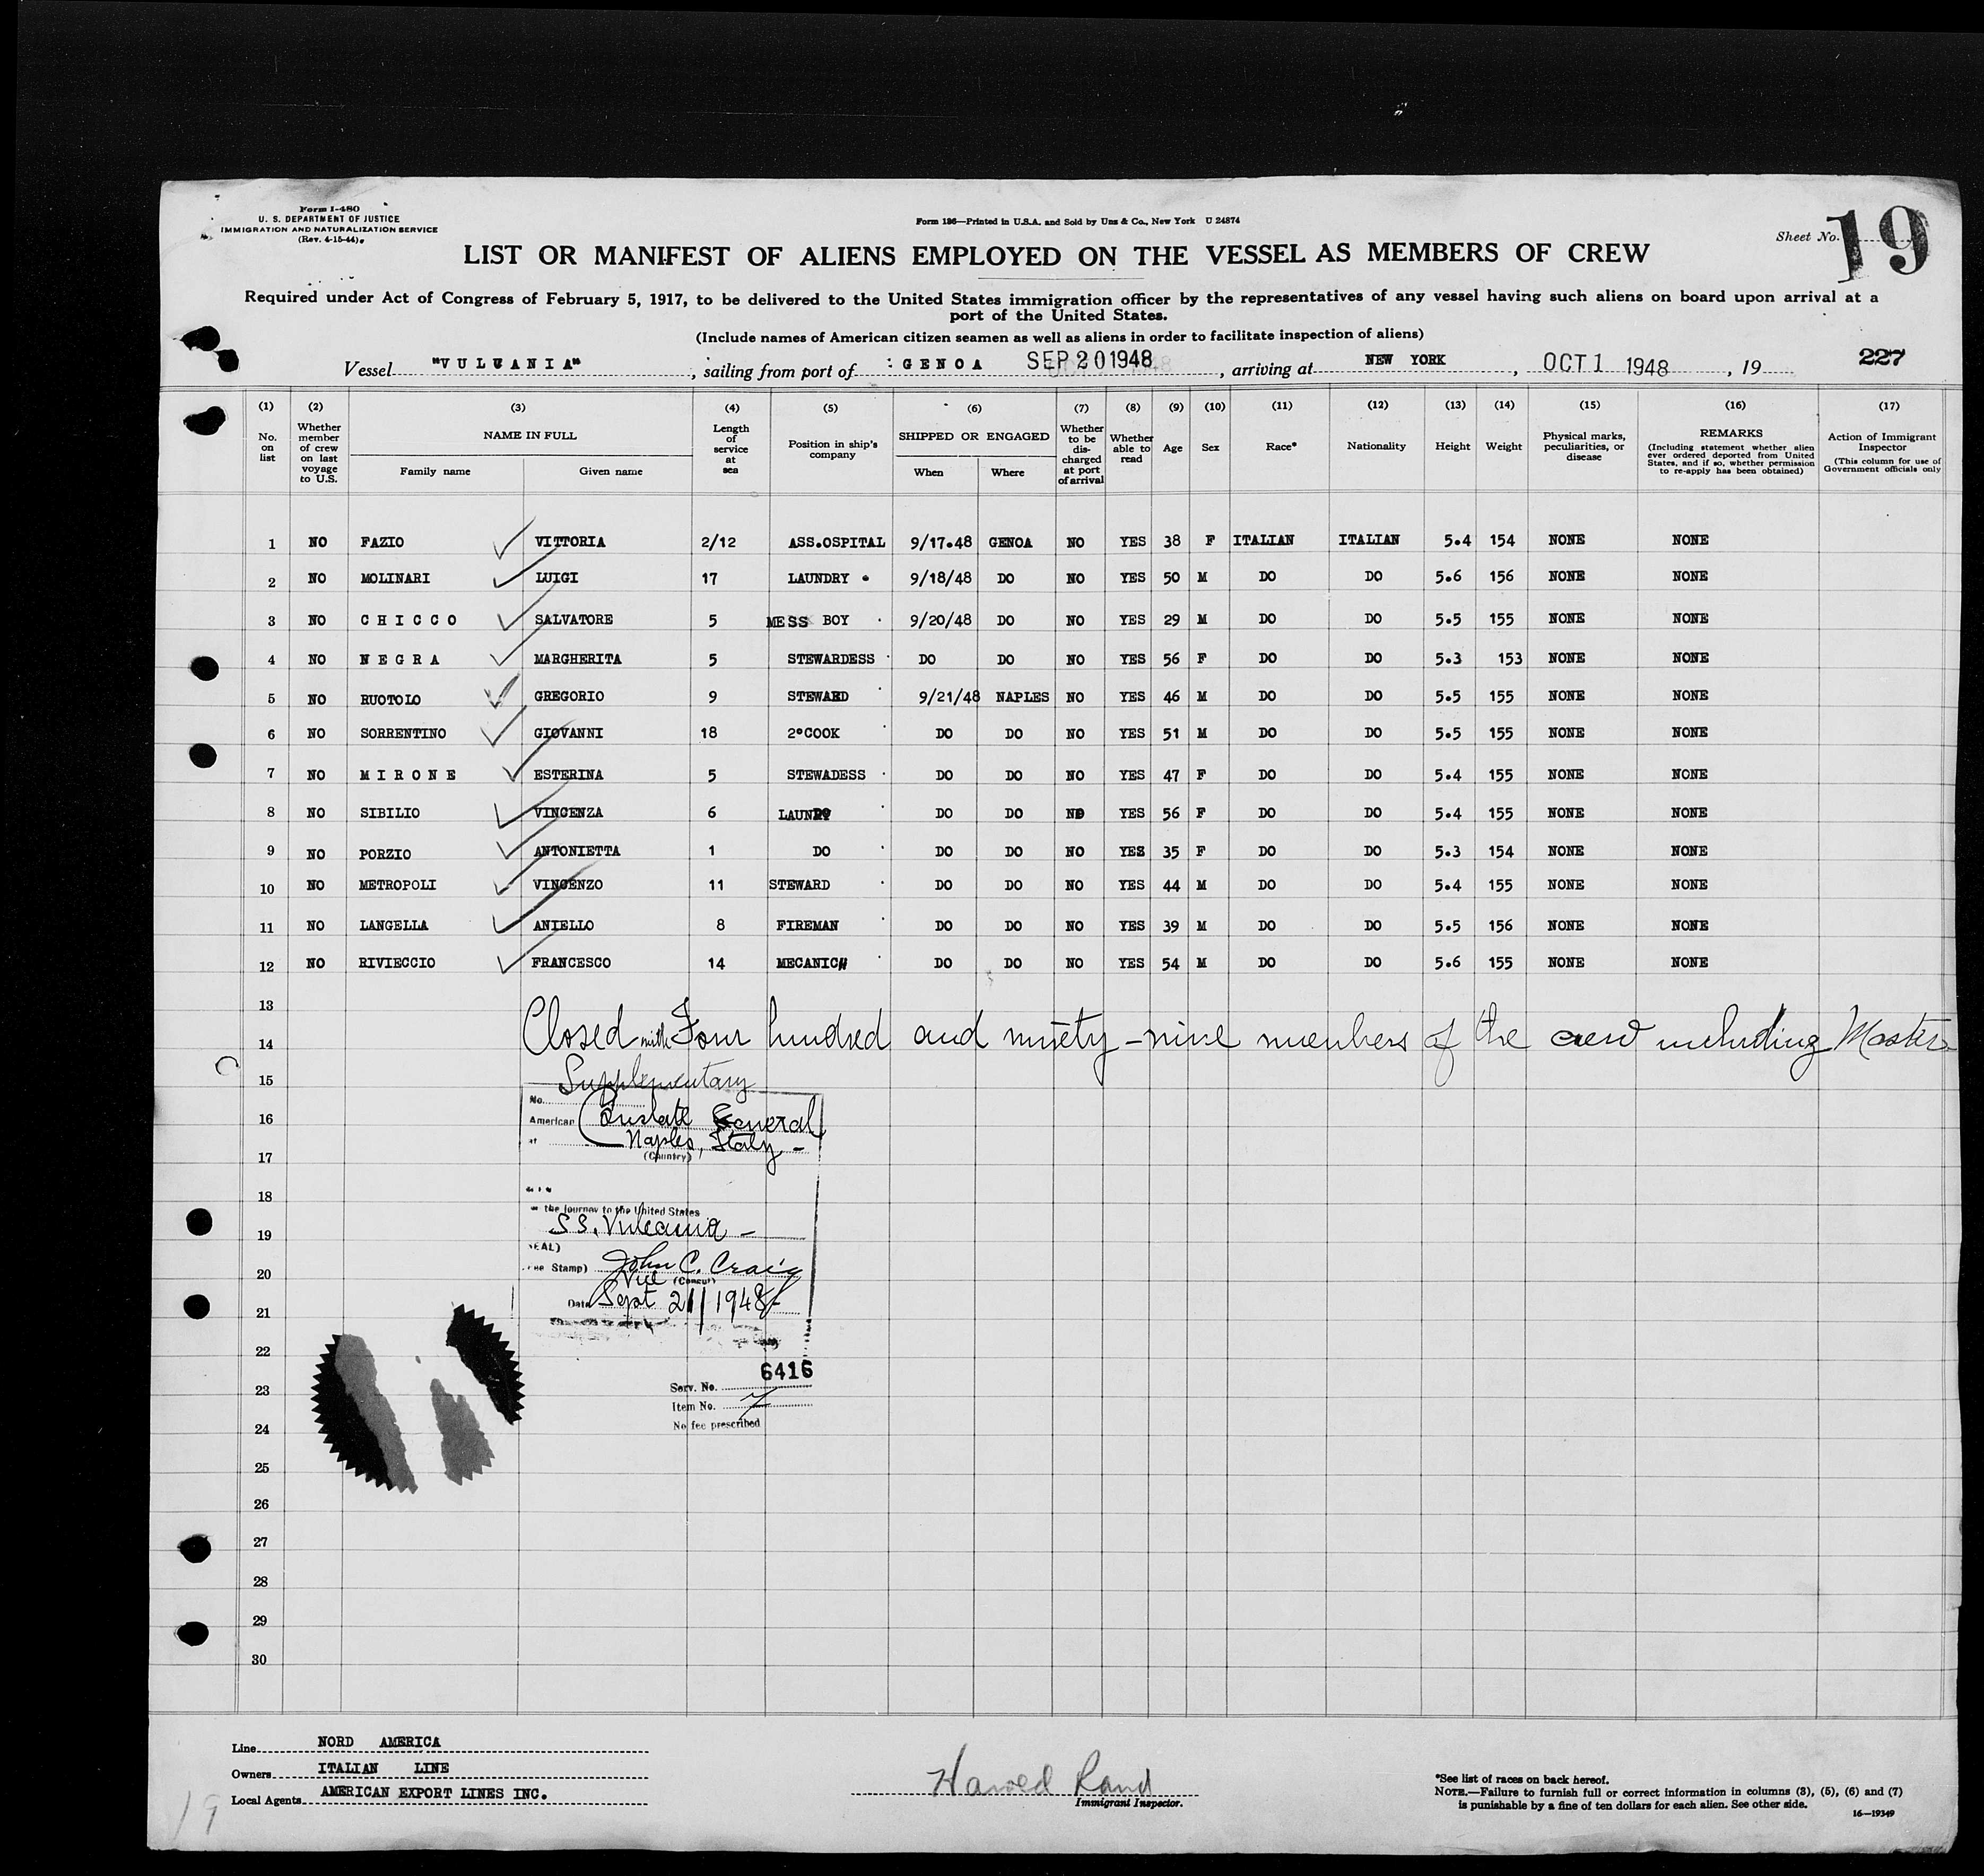 Form I-480
U. S. DEPARTMENT OF JUSTICE
IMMIGRATION AND NATURALIZATION SERVICE
(Rev. 4-15-44)
Form 186—Printed in U.S.A. and Sold by Unz & Co., New York U 24874
Sheet No. 19
LIST OR MANIFEST OF ALIENS EMPLOYED ON THE VESSEL AS MEMBERS OF CREW
Required under Act of Congress of February 5, 1917, to be delivered to the United States immigration officer by the representatives of any vessel having such aliens on board upon arrival at a
port of the United States.
(Include names of American citizen seamen as well as aliens in order to facilitate inspection of aliens)
Vessel "VULCANIA", sailing from port of GENOA SEP 20 1948, arriving at NEW YORK, OCT 1 1948, 19 227
(1) (2) (3) (4) (5) (6) (7) (8) (9) (10) (11) (12) (13) (14) (15) (16) (17)
No. on list
Whether member of crew on last voyage to U.S.
NAME IN FULL
Family name
Given name
Length of service at sea
Position in ship's company
SHIPPED OR ENGAGED
When
Where
Whether to be discharged at port of arrival
Whether able to read
Age
Sex
Race*
Nationality
Height
Weight
Physical marks, peculiarities, or disease
REMARKS
(Including statement whether alien ever ordered deported from United States, and if so, whether permission to re-apply has been obtained)
Action of Immigrant Inspector
(This column for use of Government officials only
1 NO FAZIO VITTORIA 2/12 ASS.OSPITAL 9/17.48 GENOA NO YES 38 F ITALIAN ITALIAN 5.4 154 NONE NONE
2 NO MOLINARI LUIGI 17 LAUNDRY 9/18/48 DO NO YES 50 M DO DO 5.6 156 NONE NONE
3 NO CHICCO SALVATORE 5 MESS BOY 9/20/48 DO NO YES 29 M DO DO 5.5 155 NONE NONE
4 NO NEGRA MARGHERITA 5 STEWARDESS DO DO NO YES 56 F DO DO 5.3 153 NONE NONE
5 NO RUOTOLO GREGORIO 9 STEWARD 9/21/48 NAPLES NO YES 46 M DO DO 5.5 155 NONE NONE
6 NO SORRENTINO GIOVANNI 18 2°COOK DO DO NO YES 51 M DO DO 5.5 155 NONE NONE
7 NO MIRONE ESTERINA 5 STEWADESS DO DO NO YES 47 F DO DO 5.4 155 NONE NONE
8 NO SIBILIO VINCENZA 6 DO DO NO YES 56 F DO DO 5.4 155 NONE NONE
9 NO PORZIO ANTONIETTA 1 DO DO DO NO YES 35 F DO DO 5.3 154 NONE NONE
10 NO METROPOLI VINCENZO 11 STEWARD DO DO NO YES 44 M DO DO 5.4 155 NONE NONE
11 NO LANGELLA ANIELLO 8 FIREMAN DO DO NO YES 39 M DO DO 5.5 156 NONE NONE
12 NO RIVIECCIO FRANCESCO 14 MECANICH DO DO NO YES 54 M DO DO 5.6 155 NONE NONE
13
14 Closed with Four hundred and ninety-nine members of the crew including Master
15 Supplementary
No.
16 American Consulate General
at Naples, Italy -
17 (Country)
18
the journey to the United States
19 SS. Vulcania -
SEAL)
Stamp) John C. Craig
20 Vice (Consul)
Date Sept 21/1948
21
22
6416
23 Serv. No.
Item No. 7
24 No fee prescribed
25
26
27
28
29
30
Line NORD AMERICA
Owners ITALIAN LINE
Local Agents AMERICAN EXPORT LINES INC.
Harold Rand
Immigrant Inspector.
*See list of races on back hereof.
NOTE.—Failure to furnish full or correct information in columns (3), (5), (6) and (7)
is punishable by a fine of ten dollars for each alien. See other side.
16—19349
19